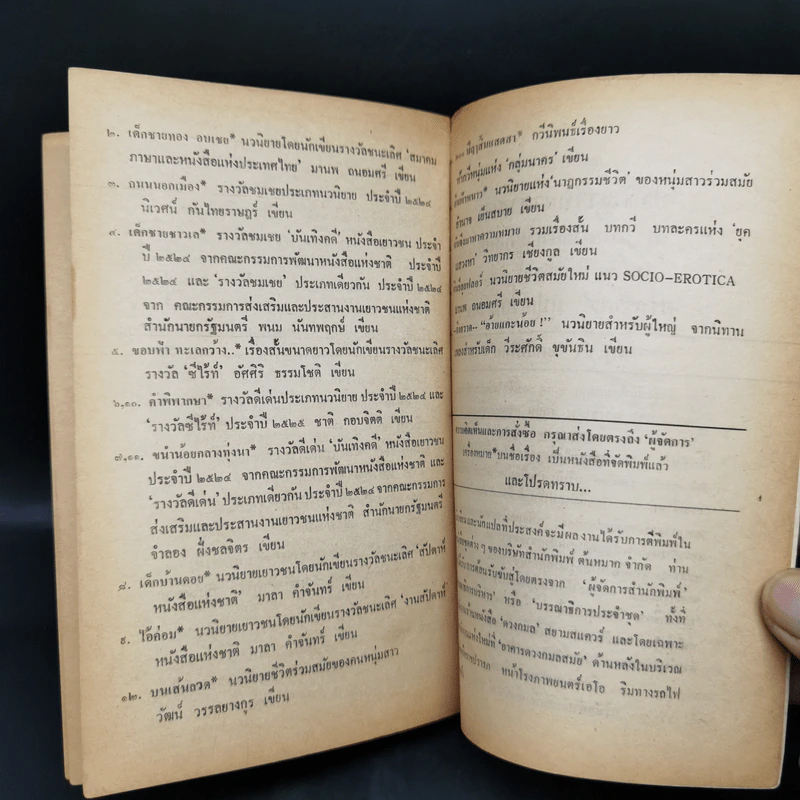 ๒. เด็กชายทอง อบเชย* นวนิยายโดยนักเขียนรางวัลชนะเลิศ ‘สมาคม
ภาษาและหนังสือแห่งประเทศไทย’ มานพ ถนอมศรี เขียน
๓. ถนนนอกเมือง* รางวัลชมเชยประเภทนวนิยาย ประจำปี ๒๕๒๔
นิเวศน์ กันไทยราษฎร์ เขียน
๔. เด็กชายชาวเล* รางวัลชมเชย ‘บันเทิงคดี’ หนังสือเยาวชน ประจำ
ปี ๒๕๒๔ จากคณะกรรมการพัฒนาหนังสือแห่งชาติ ประจำปี
๒๕๒๔ และ ‘รางวัลชมเชย’ ประเภทเดียวกัน ประจำปี ๒๕๒๔
จาก คณะกรรมการส่งเสริมและประสานงานเยาวชนแห่งชาติ
สำนักนายกรัฐมนตรี พนม นันทพฤกษ์ เขียน
๕. ขอบฟ้า ทะเลกว้าง..* เรื่องสั้นขนาดยาวโดยนักเขียนรางวัลชนะเลิศ
รางวัล ‘ซีไร้ท์’ อัศศิริ ธรรมโชติ เขียน
๖,๑๐. คำพิพากษา* รางวัลดีเด่นประเภทนวนิยาย ประจำปี ๒๕๒๔ และ
‘รางวัลซีไร้ท์’ ประจำปี ๒๕๒๕ ชาติ กอบจิตติ เขียน
๗,๑๑. ขนำน้อยกลางทุ่งนา* รางวัลดีเด่น ‘บันเทิงคดี’ หนังสือเยาวชน
ประจำปี ๒๕๒๔ จากคณะกรรมการพัฒนาหนังสือแห่งชาติ และ
‘รางวัลดีเด่น’ ประเภทเดียวกัน ประจำปี ๒๕๒๔ จากคณะกรรมการ
ส่งเสริมและประสานงานเยาวชนแห่งชาติ สำนักนายกรัฐมนตรี
จำลอง ฝั่งชลจิตร เขียน
๘. เด็กบ้านดอย* นวนิยายเยาวชนโดยนักเขียนรางวัลชนะเลิศ ‘สัปดาห์
หนังสือแห่งชาติ’ มาลา คำจันทร์ เขียน
๙. ไอ้ค่อม* นวนิยายเยาวชนโดยนักเขียนรางวัลชนะเลิศ ‘งานสัปดาห์
หนังสือแห่งชาติ มาลา คำจันทร์ เขียน
๑๒. บนเส้นลวด* นวนิยายชีวิตร่วมสมัยของคนหนุ่มสาว
วัฒน์ วรรลยางกูร เขียน
กวีนิพนธ์เรื่องยาว
แห่ง ‘กลุ่มนาคร’ เขียน
นวนิยายแห่ง ‘นาฏกรรมชีวิต’ ของหนุ่มสาวร่วมสมัย
เย็นสบาย เขียน
ความหมาย รวมเรื่องสั้น บทกวี บทละครแห่ง ‘ยุค
วิทยากร เชียงกูล เขียน
นวนิยายชีวิตสมัยใหม่ แนว SOCIO-EROTICA
มานพ ถนอมศรี เขียน
“อ้ายแกะน้อย !” นวนิยายสำหรับผู้ใหญ่ จากนิทาน
สำหรับเด็ก วีระศักดิ์ ขุขันธิน เขียน
ความคิดเห็นและการสั่งซื้อ กรุณาส่งโดยตรงถึง ‘ผู้จัดการ’
เครื่องหมาย*บนชื่อเรื่อง เป็นหนังสือที่จัดพิมพ์แล้ว
และโปรดทราบ...
และนักแปลที่ประสงค์จะมีผลงานได้รับการตีพิมพ์ใน
ต่าง ๆ ของบริษัทสำนักพิมพ์ ต้นหมาก จำกัด ท่าน
การต้อนรับขับสู้โดยตรงจาก ‘ผู้จัดการสำนักพิมพ์’
หรือ ‘บรรณาธิการประจำชุด’ ทั้งที่
ร้านหนังสือ ‘ดวงกมล’ สยามสแควร์ และโดยเฉพาะ
แห่งใหม่ที่ ‘อาคารดวงกมลสมัย’ ด้านหลังในบริเวณ
หน้าโรงภาพยนตร์เอโอ ริมทางรถไฟ